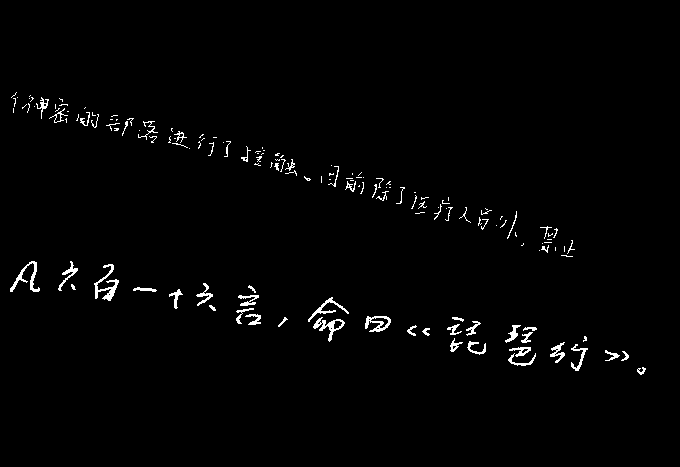 个神密的部落进行了接触。目前除了医疗人员外,禁止
凡六百一十六言,命曰《琵琶行》。